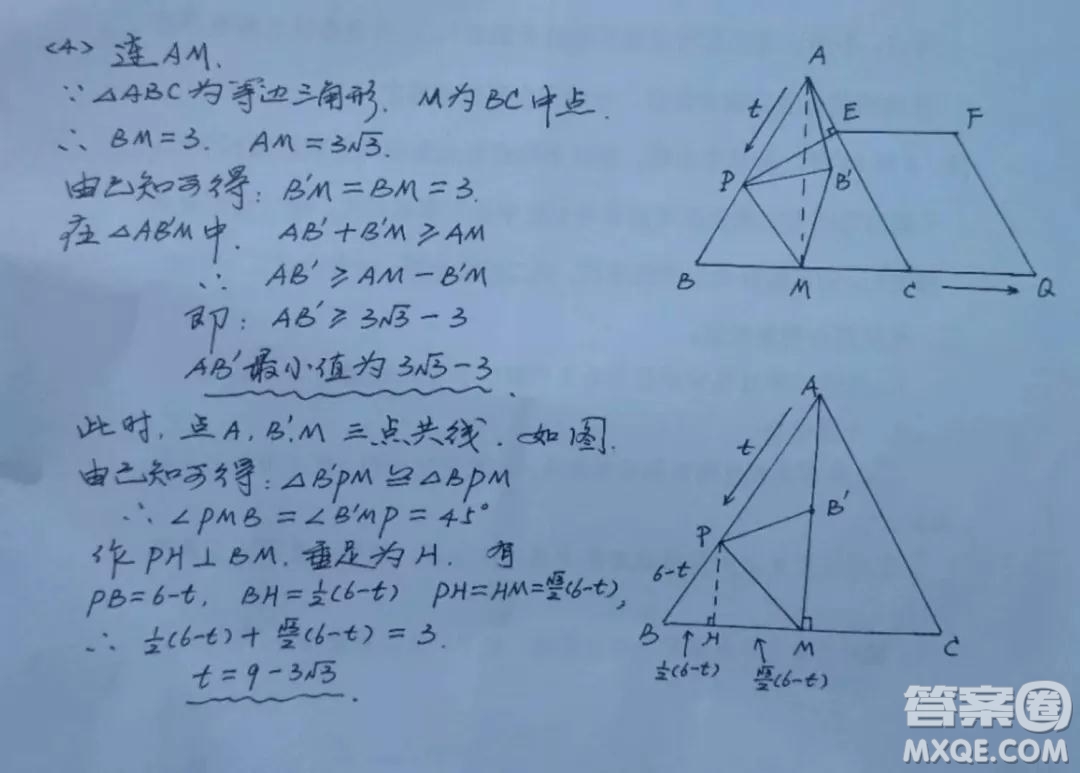 <4> 连AM.
∵ △ABC为等边三角形. M为BC中点.
∴ BM=3. AM=3√3.
由已知可得: B'M=BM=3.
在△AB'M中. AB'+B'M≥AM
∴ AB'≥AM-B'M
即: AB'≥3√3-3
AB'最小值为3√3-3.
此时, 点A, B', M 三点共线. 如图.
由已知可得: △B'PM≌△BPM
∴ ∠PMB=∠B'MP=45°
作PH⊥BM, 垂足为H. 有
PB=6-t, BH=½(6-t) PH=HM=√3/2(6-t),
∴ ½(6-t)+√3/2(6-t)=3.
t=9-3√3.
A
t
E
F
P
B'
B
M
C
Q
A
t
B'
P
6-t
B
H
M
C
½(6-t)
√3/2(6-t)
答案圈
MXQE.COM